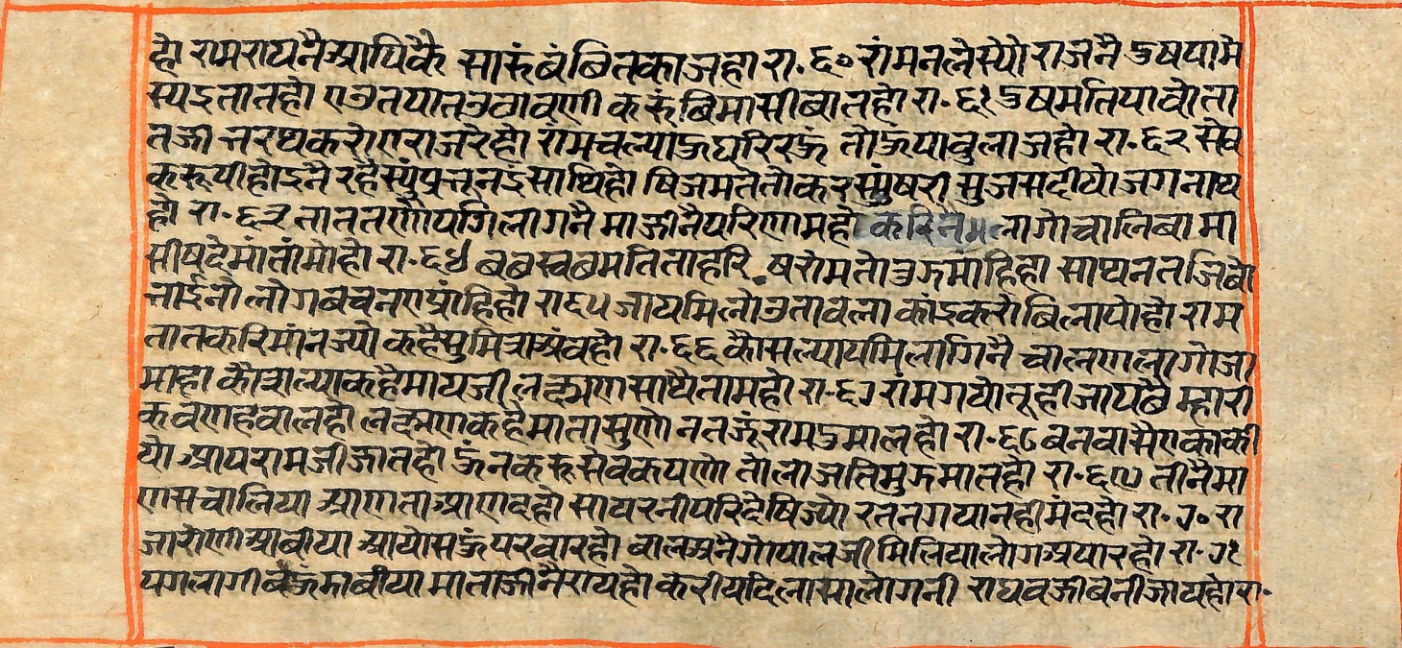 हो रामरायनैआपिकै सारुंबंबितकाजहो रा. ६० रांमनलेस्यो राजनै दुषपामे
स्यइतातहो एउतपातउठावणी करुंबिमासीबातहो रा. ६१ दुषमतिपावोता
तजी नरथकरोएराजरेहो रामचल्योऊघरिरऊं तोऊपाबुलाजहो रा. ६२ सेव
करूपीहोइनै रहैस्युंप्रनुनइंसाथिहो षिजमततोकरस्युंषरी सुजसदीयोजगनाथ
हो रा. ६३ ताततणैपगिलागनै माजीनैपरिणामहो करिन लागोचालिबा मा
सीषदेमांतांमोहो रा. ६४ बबस्वबमतिताहरि षरोमतोउऊमांहिहो साथनतजिबो
नाईनो लोगबचनएप्रांहिहो रा ६५ जायमिलोउतावला कांइकरोबिलापोहो राम
तातकरिमांनज्यो कहैसुमित्राअंबहो रा. ६६ कौसल्यापयमिलागिनै चालणलागोजा
महो कौशल्याकहैमायजी लक्ष्मणसाथैतामहो रा. ६७ रांमगयोतूहीजायबै म्हारी
कवणहवालहो लक्ष्मणकहैमातासुणो नतजूंरामदुमालहो रा. ६८ बनबासैएकाकी
यो आपरामजीजातहो ऊंनकरूसेवकपणो तोलाजतिमुऊमातहो रा. ६९ तीनैमा
णसचालिया आणताआणदहो सायरनीपरिदेषिज्यो रतनगयानहीमंदहो रा. ७० रा
जारोणीआबीया आयोसऊंपरवारहो बालअनैगोपालजी मिलियालोगअपारहो रा. ७१
पगलागीबऊंमाबीया माताजीनैरायहो करीयदिलासालोगनी राघवजीबनीजायहो रा.